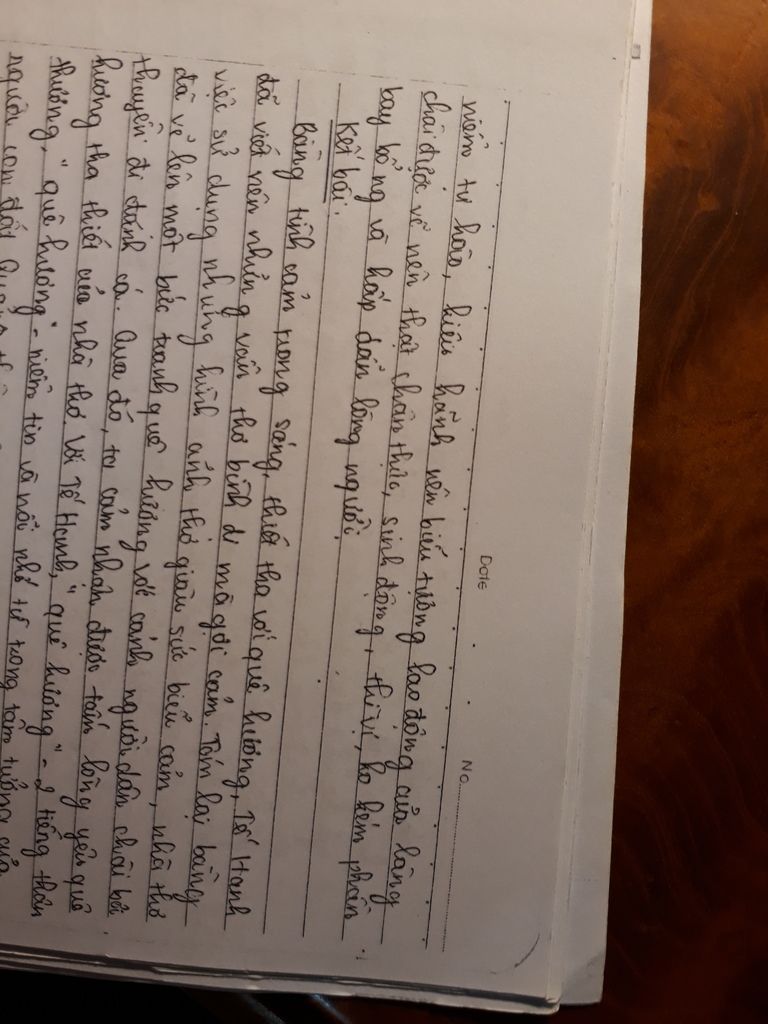 Date No
niềm tự hào, kiêu hãnh nên biểu tượng lao động của làng
chài được vẽ nên thật chân thực, sinh động, thi vị, ko kém phần
bay bổng và hấp dẫn lòng người.
Kết bài.
Bằng tình cảm trong sáng, thiết tha với quê hương, Tế Hanh
đã viết nên những vần thơ bình dị mà gợi cảm. Tóm lại bằng
việc sử dụng những hình ảnh thơ giàu sức biểu cảm, nhà thơ
đã vẽ lên một bức tranh quê hương với cảnh người dân chài bơi
thuyền đi đánh cá. Qua đó, ta cảm nhận được tấm lòng yêu quê
hương tha thiết của nhà thơ. Với Tế Hanh, "quê hương" - 2 tiếng thân
thương, "quê hương" - niềm tin và nỗi nhớ từ trong tâm tưởng của
người con đất Quảng